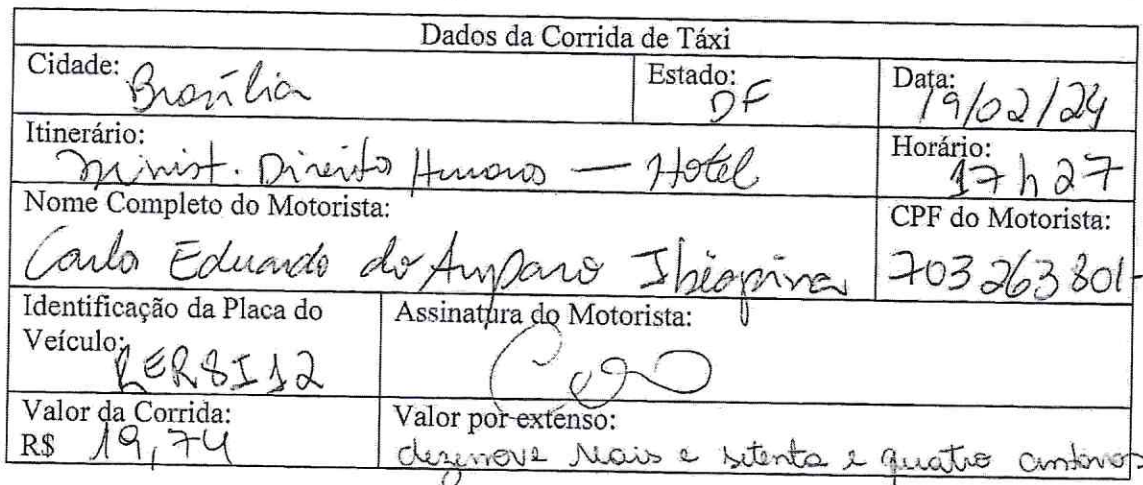 Dados da Corrida de Táxi
Cidade: Brasília
Estado: DF
Data: 19/02/24
Itinerário: Minist. Direito Humanos — Hotel
Horário: 17h27
Nome Completo do Motorista:
Carlo Eduardo do Amparo Ibiapina
CPF do Motorista:
703263801-
Identificação da Placa do
Veículo: RER8I12
Assinatura do Motorista:
Valor da Corrida:
R$ 19,74
Valor por extenso:
dezenove reais e setenta e quatro centavos